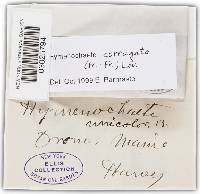 Hymenochaete corrugata
(Fr.:Fr.) Lév.
Det. Oct 1999 E. Parmasto
00027794
Hymenochaete
unicolor, B.
Orono, Maine
Harvey
NEW YORK
ELLIS
COLLECTION
BOTANICAL GARDEN